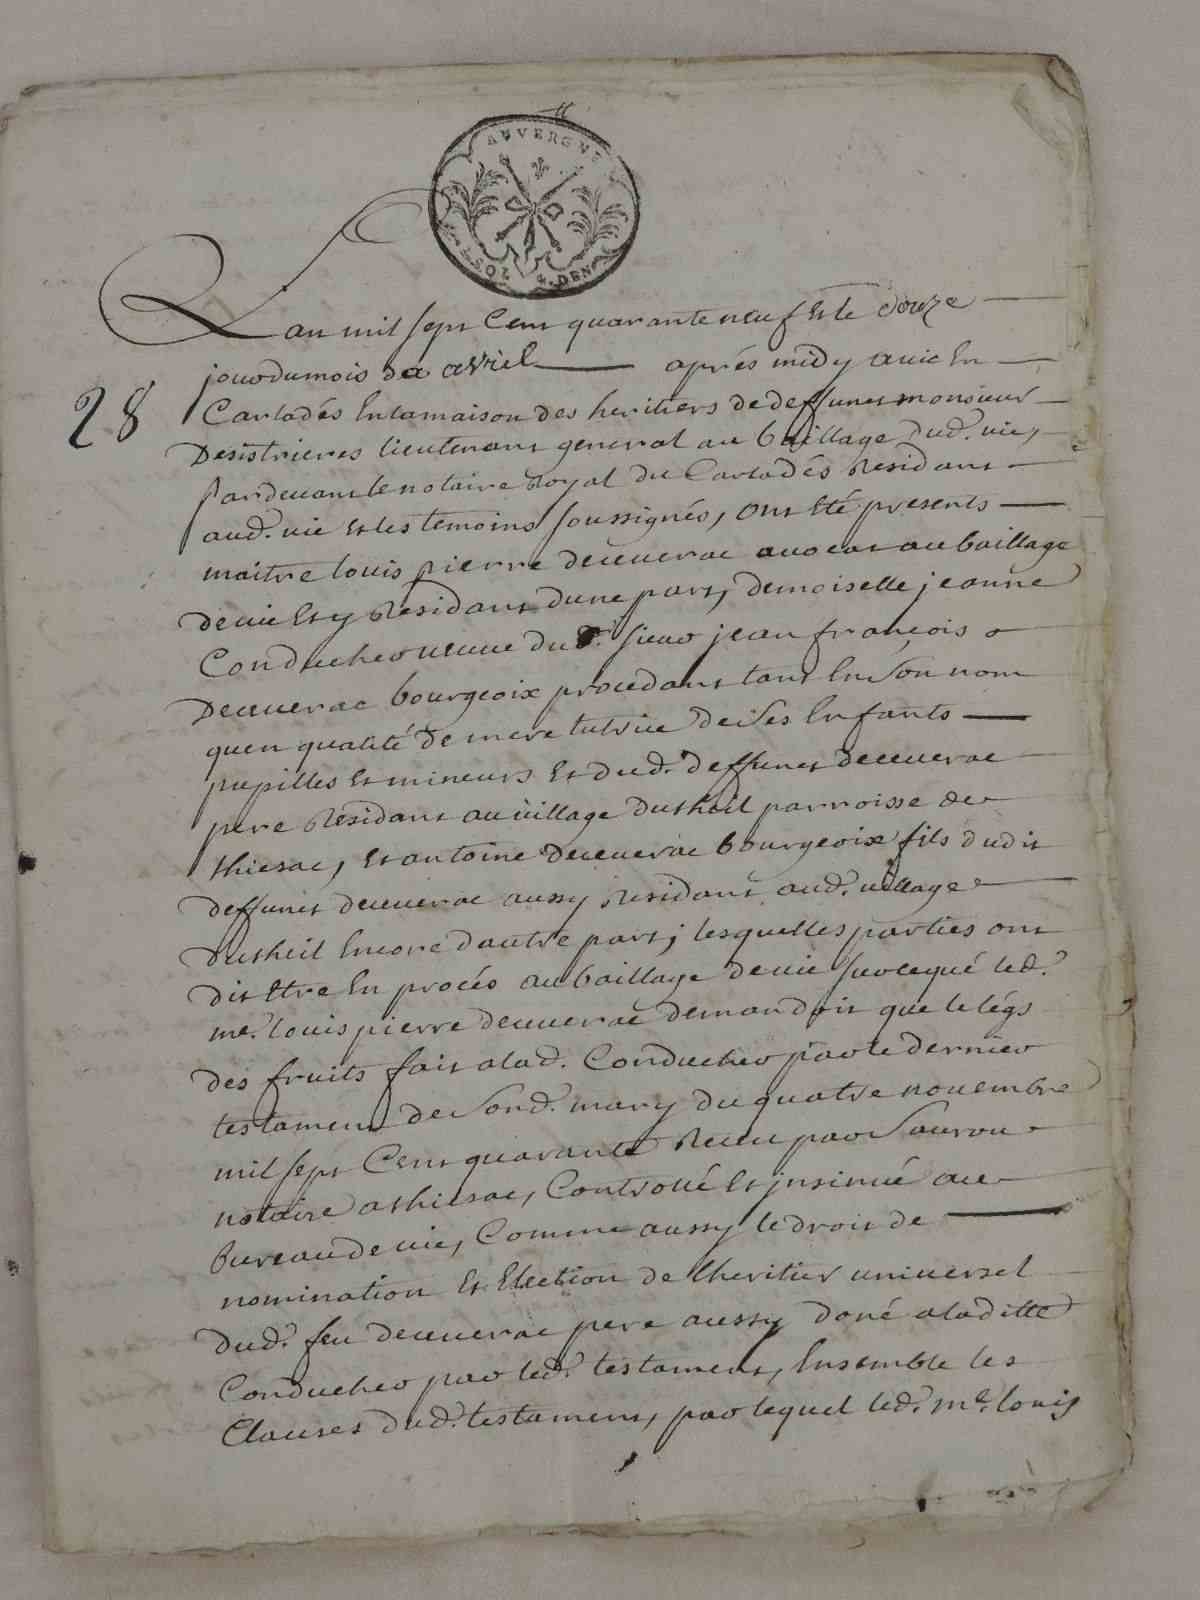 AUVERGNE
2 SOLZ 4 DEN
Lan mil sept Cent quarante neuf Et le douze
jour du mois de avriel aprés midy a vic En
28
Carladés En la maison des heritiers de deffunet monsieur
Desistrieres lieutenant general au baillage dud. vic,
pardevant le notaire Royal du Carladés Residant
aud. vic et les temoins soussignés, ont Eté presents
maitre louis pierre deceuerac auocat au baillage
de vic Et y Residant dune part, demoiselle jeanne
Conducheo veuue du d. sieur jean françois
Deceuerac bourgeoix procedant tant En son nom
quen qualité de mere tutrice de ses Enfants
pupilles Et mineurs Et dud. deffunet deceuerac
pere Residant au village dutheil parroisse de
thiesac, Et antoine deceuerac bourgeoix fils dudit
deffunet deceuerac aussy Residant aud. village
dutheil Encore dautre part; lesquelles parties ont
dit Etre En procés au baillage de vic sur ce qué led.
me. louis pierre deceuerac demandoit que le légs
des fruits fait a lad. Conducheo par le dernier
testament de sond. mary du quatre nouembre
mil sept Cent quarante Receu par Saurou
notaire a thiesac, Controllé Et jnsinué au
bureau de vic, Comme aussy le droit de
nomination Et Election de lheritier uniuersel
dud. feu deceuerac pere aussy doné a laditte
Conducheo par led. testament, Ensemble les
Clauses dud. testament, par lequel led. me. louis